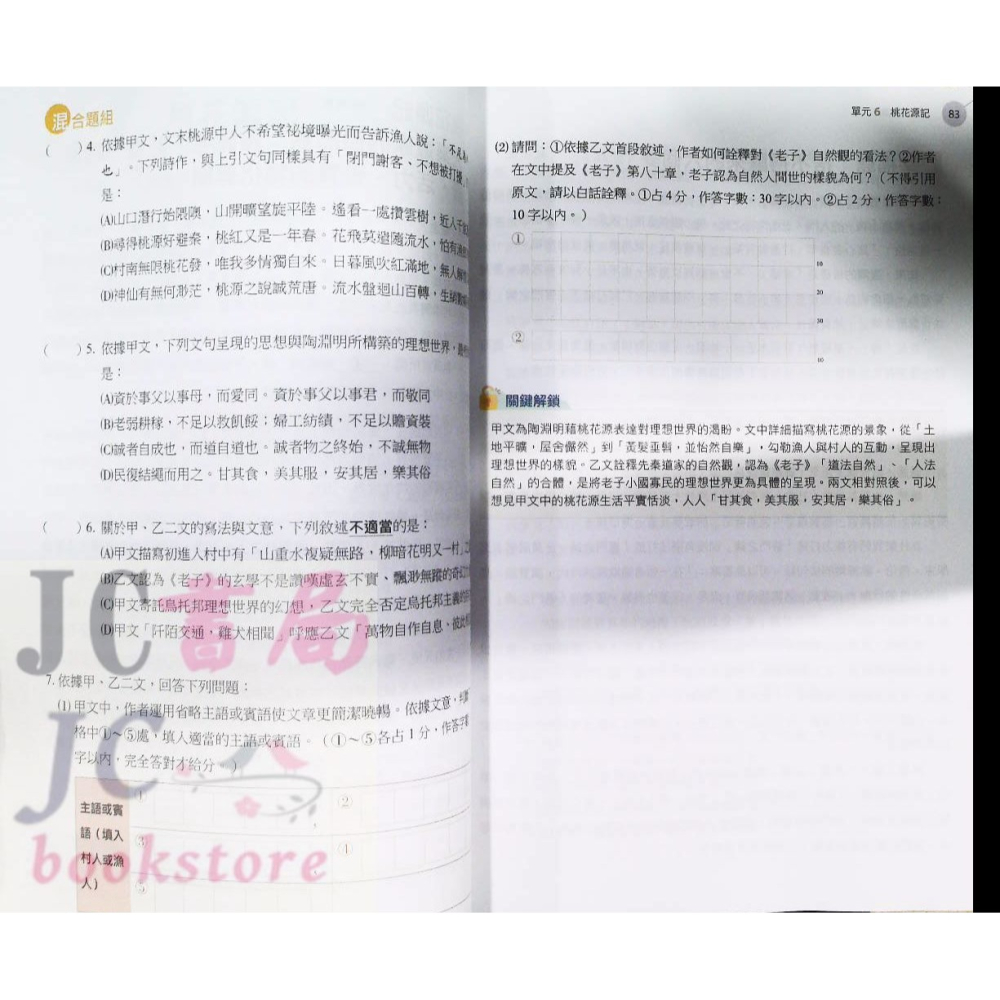 混合題組
( )4. 依據甲文，文末桃源中人不希望祕境曝光而告訴漁人說：「不足為
也」。下列詩作，與上引文句同樣具有「閉門謝客、不想被打擾
是：
(A)山口潛行始隈隩，山開曠望旋平陸。遙看一處攢雲樹，近人千
(B)尋得桃源好避秦，桃紅又是一年春。花飛莫遣隨流水，怕有漁
(C)村南無限桃花發，唯我多情獨自來。日暮風吹紅滿地，無人解
(D)神仙有無何渺茫，桃源之說誠荒唐。流水盤迴山百轉，生綃數
( )5. 依據甲文，下列文句呈現的思想與陶淵明所構築的理想世界，最
是：
(A)資於事父以事母，而愛同。資於事父以事君，而敬同
(B)老弱耕稼，不足以救飢餒；婦工紡績，不足以贍資裝
(C)誠者自成也，而道自道也。誠者物之終始，不誠無物
(D)民復結繩而用之。甘其食，美其服，安其居，樂其俗
( )6. 關於甲、乙二文的寫法與文意，下列敘述不適當的是：
(A)甲文描寫初進人村中有「山重水複疑無路，柳暗花明又一村」
(B)乙文認為《老子》的玄學不是讚嘆虛玄不實、飄渺無蹤的奇
(C)甲文寄託烏托邦理想世界的幻想，乙文完全否定烏托邦主義
(D)甲文「阡陌交通，雞犬相聞」呼應乙文「萬物自作自息、彼此
7. 依據甲、乙二文，回答下列問題：
(1) 甲文中，作者運用省略主語或賓語使文章更簡潔曉暢。依據文意，
格中①～⑤處，填入適當的主語或賓語。（①～⑤各占1分，作答字
字以內，完全答對才給分。）
主語或賓
語（填入
村人或漁
人）
①
②
③
④
⑤
JC書局
JC
bookstore
單元6 桃花源記 83
(2) 請問：①依據乙文首段敘述，作者如何詮釋對《老子》自然觀的看法？②作者
在文中提及《老子》第八十章，老子認為自然人間世的樣貌為何？（不得引用
原文，請以白話詮釋。①占4分，作答字數：30字以內。②占2分，作答字數：
10字以內。）
①
10
20
30
②
10
關鍵解鎖
甲文為陶淵明藉桃花源表達對理想世界的渴盼。文中詳細描寫桃花源的景象，從「土
地平曠，屋舍儼然」到「黃髮垂髫，並怡然自樂」，勾勒漁人與村人的互動，呈現出
理想世界的樣貌。乙文詮釋先秦道家的自然觀，認為《老子》「道法自然」、「人法
自然」的合體，是將老子小國寡民的理想世界更為具體的呈現。兩文相對照後，可以
想見甲文中的桃花源生活平實恬淡，人人「甘其食，美其服，安其居，樂其俗」。